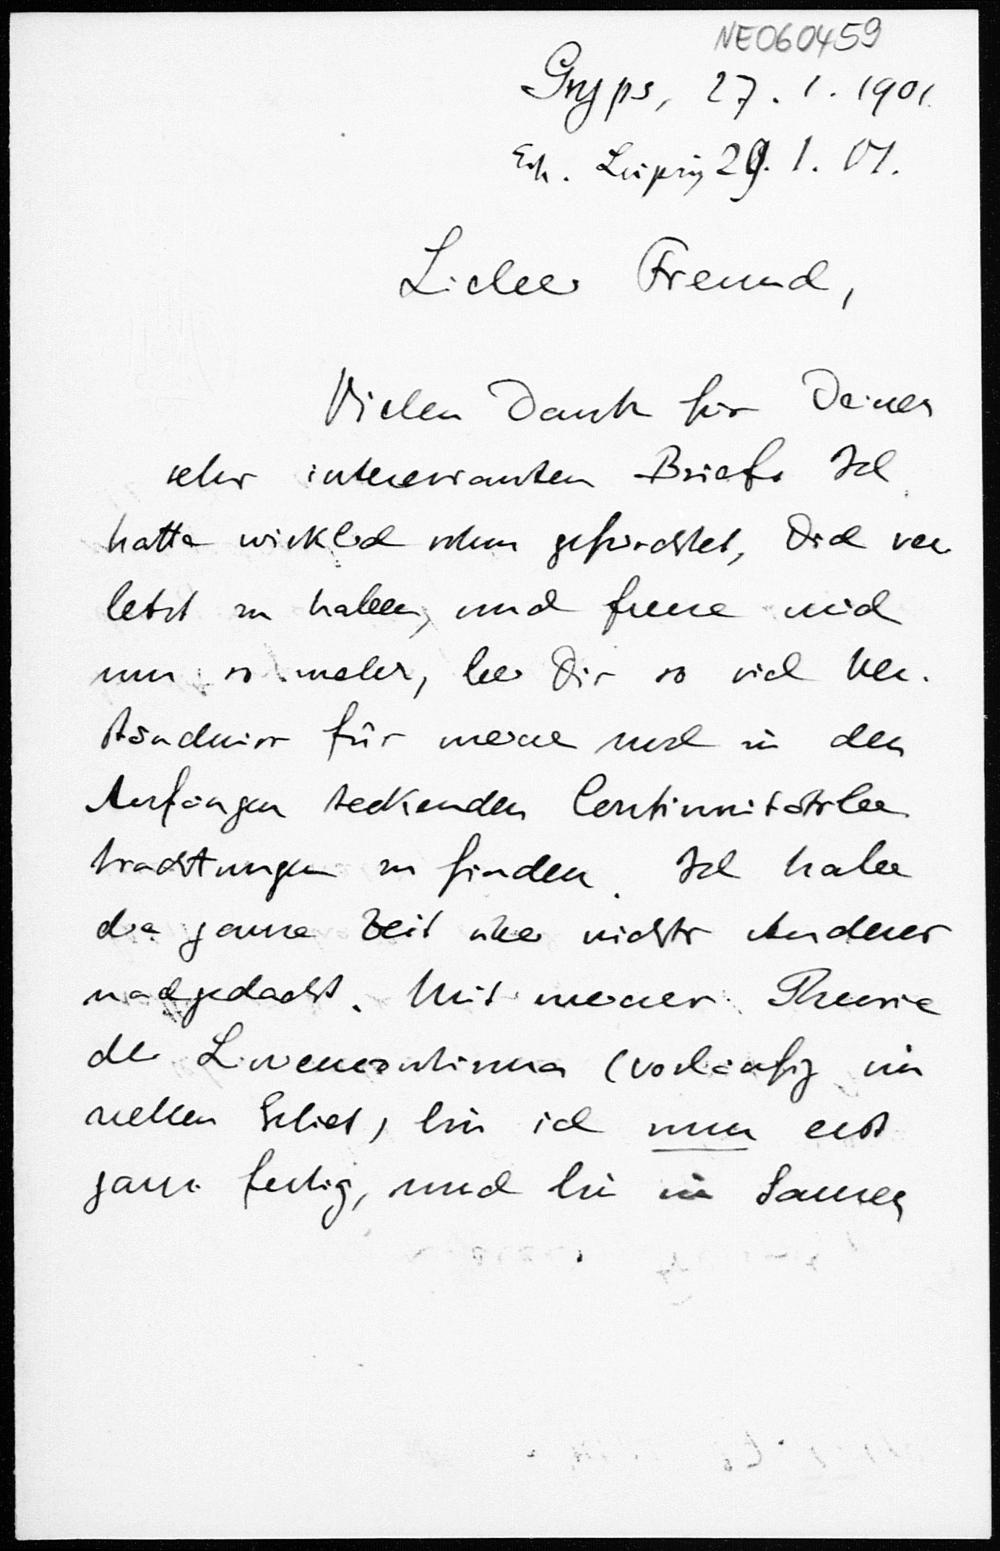 NE060459
Gryps, 27. 1. 1901.
Erh. Leipzig 29. 1. 01.
Lieber Freund,
Vielen Dank für Deinen
sehr interessanten Brief. Ich
hatte wirklich schon gefürchtet, Dich ver
letzt zu haben, und freue mich
nun so mehr, bei Dir so viel Ver-
ständniss für meine noch in den
Anfängen steckenden Continuitätsbe
trachtungen zu finden. Ich habe
die ganze Zeit über nichts Anderes
nachgedacht. Mit meiner Theorie
der (vorläufig im
reellen Gebiet) bin ich nun erst
ganz fertig, und bin im Ganzen